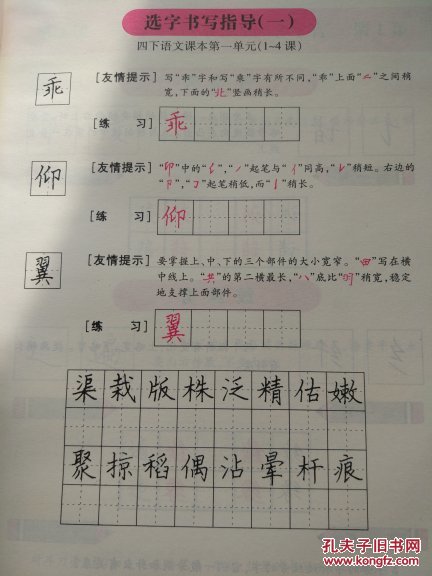 选字书写指导(一)
四下语文课本第一单元(1~4课)
乖
[友情提示] 写“乖”字和写“乘”字有所不同,“乖”上面“二”之间稍
宽,下面的“北”竖画稍长。
[练 习] 乖
仰
[友情提示] “卬”中的“𠂎”,“丿”起笔与“亻”同高,“㇙”稍短。右边的
“卩”,“㇆”起笔稍低,而“丨”稍长。
[练 习] 仰
翼
[友情提示] 要掌握上、中、下的三个部件的大小宽窄。“田”写在横
中线上。“共”的第二横最长,“八”底比“羽”稍宽,稳定
地支撑上面部件。
[练 习] 翼
渠栽版株泛精估嫩
聚掠稻偶沾晕杆痕
孔夫子旧书网